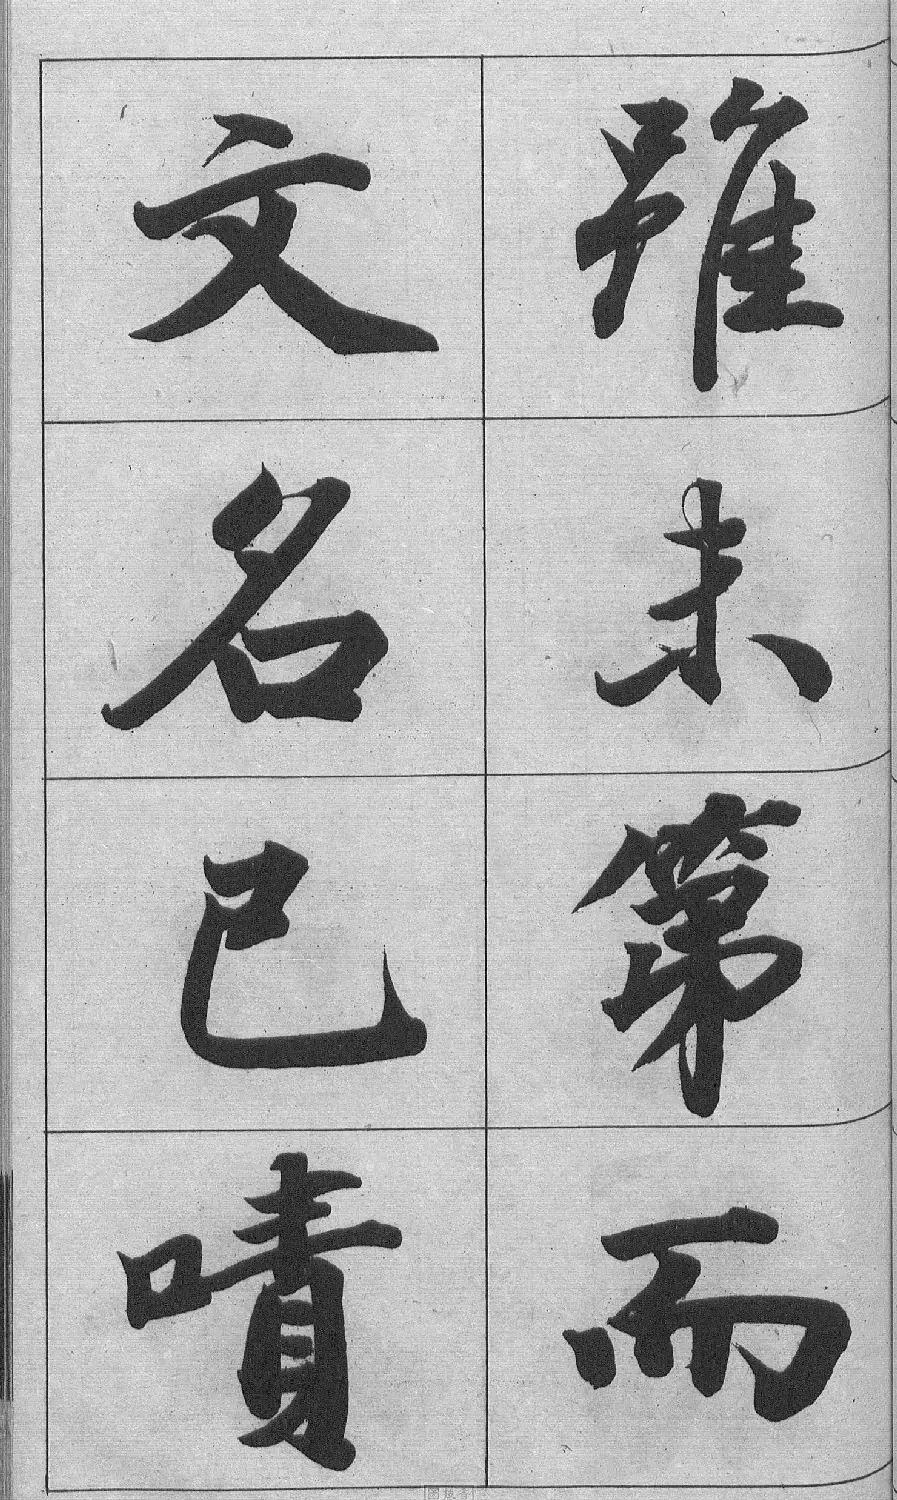 雖未第而
文名已嘖